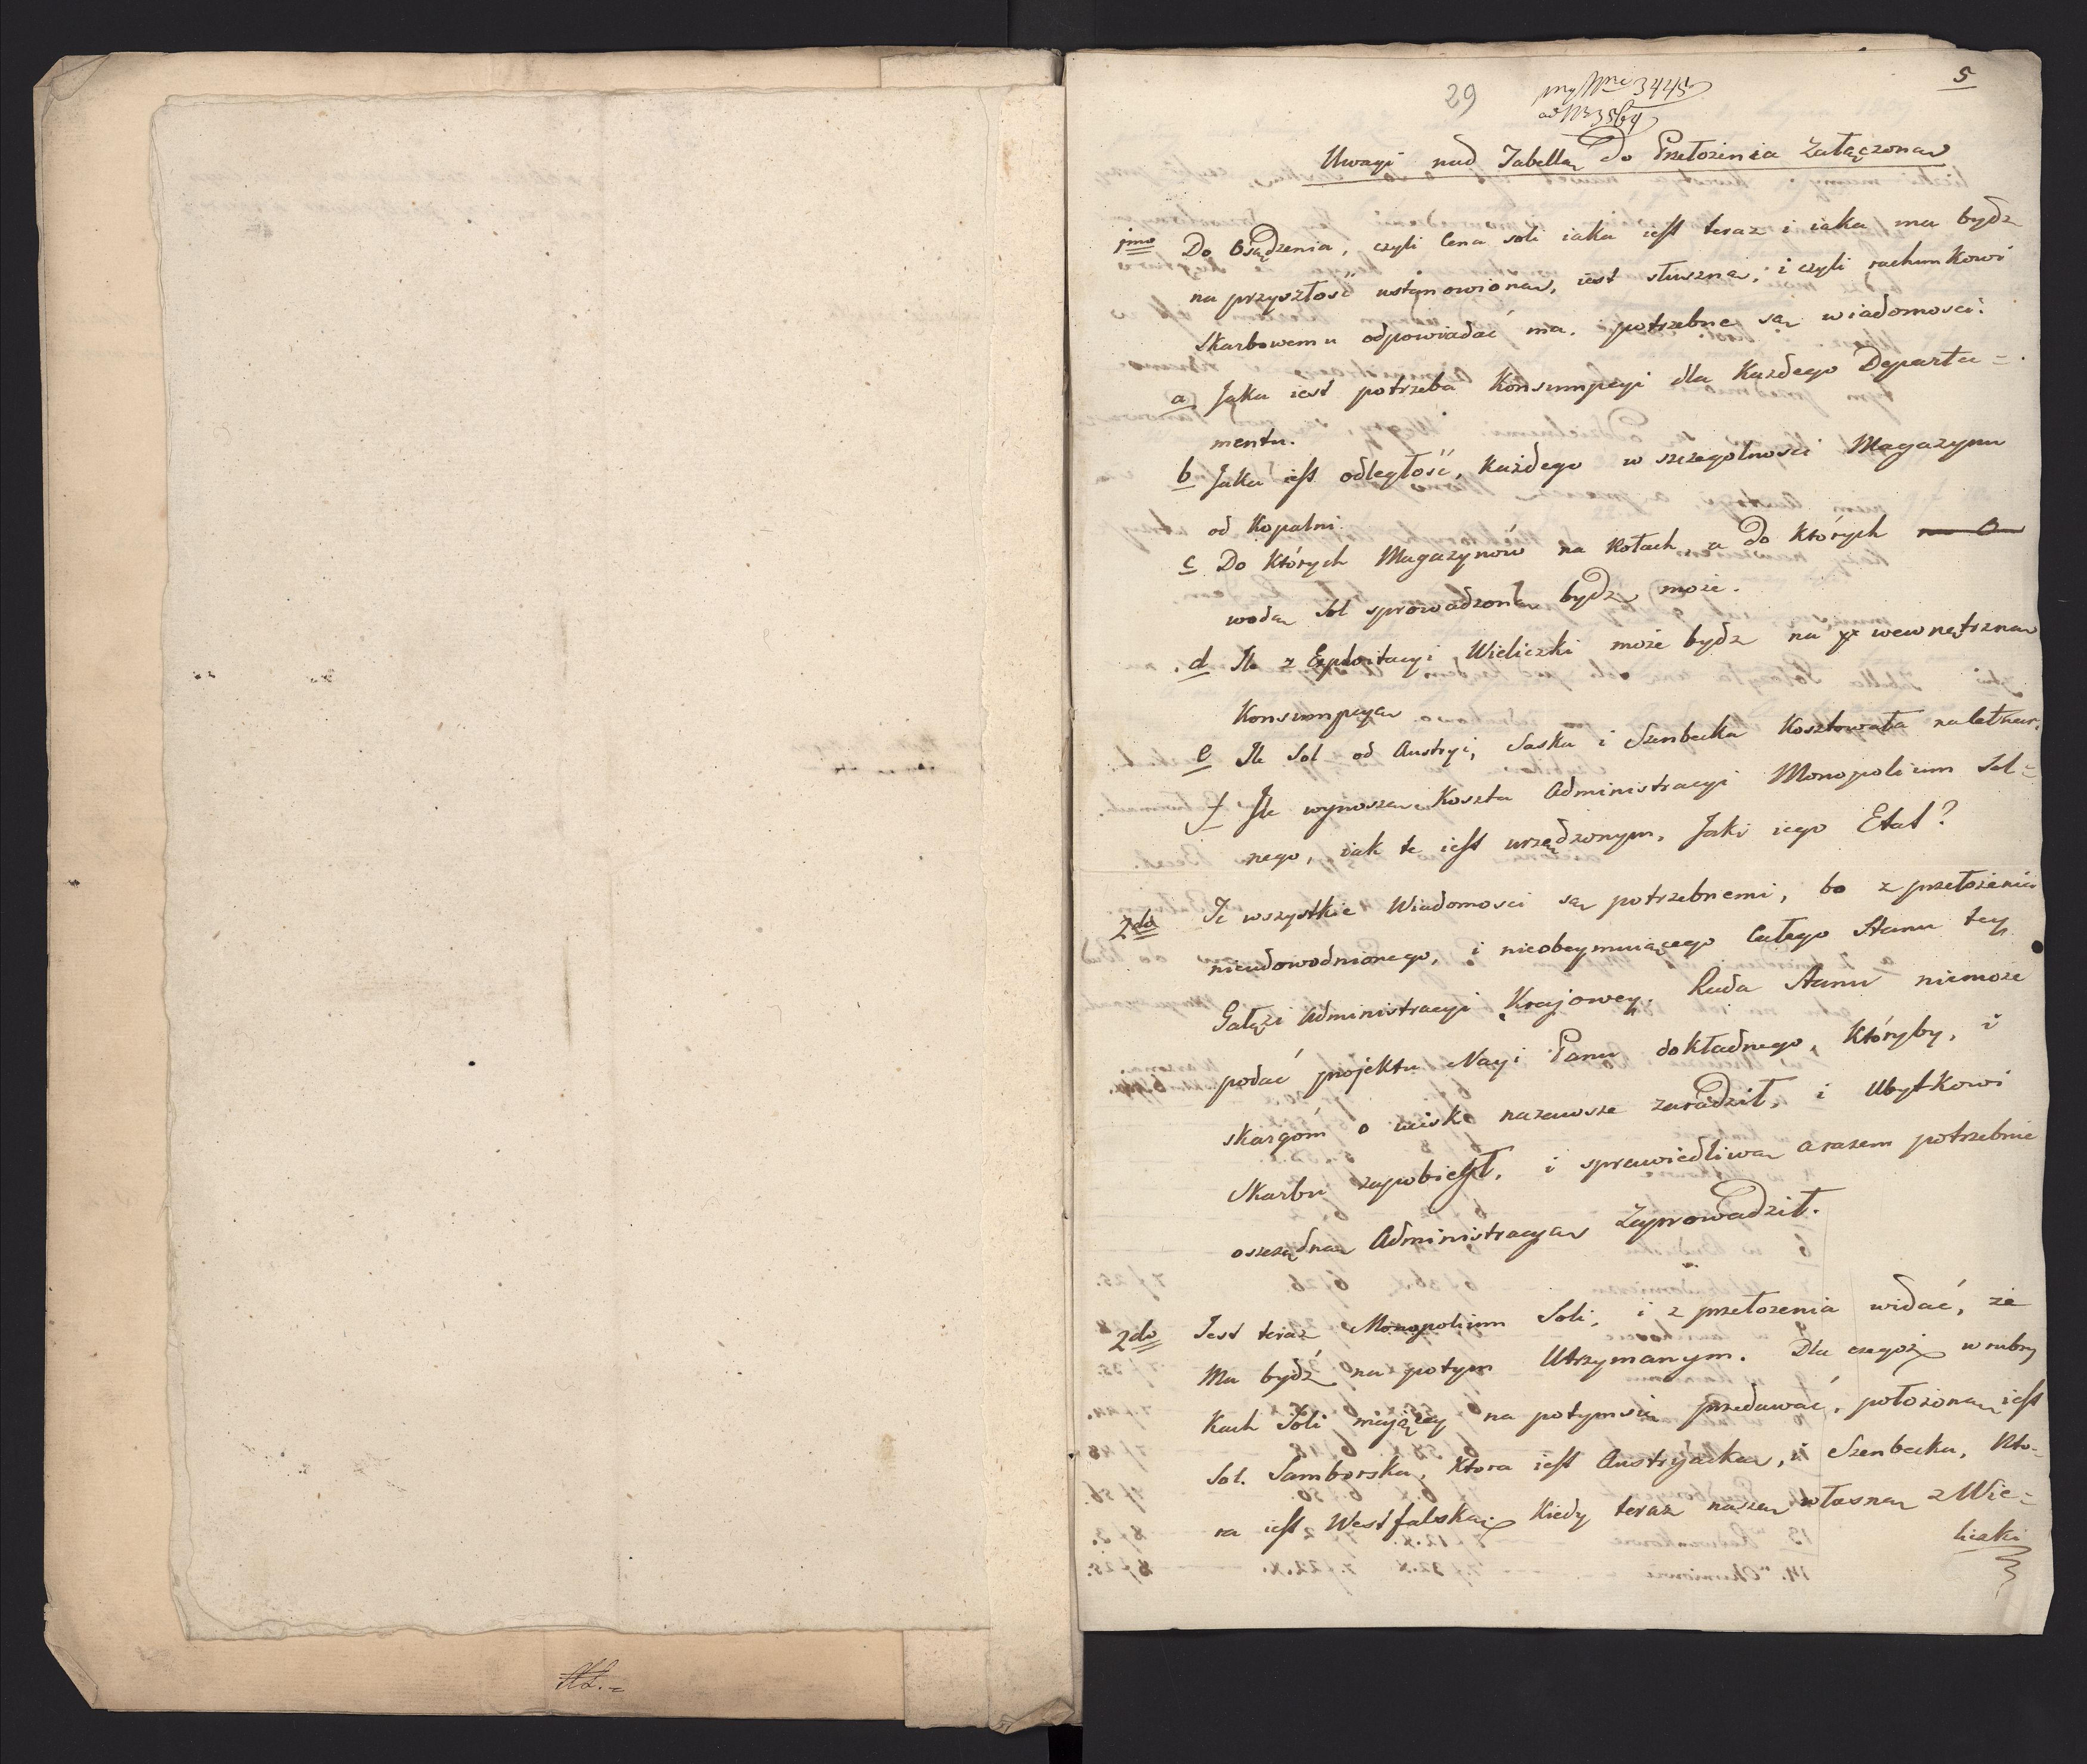 5
29
3445
ad Nr 3564
Uwagi nad Tabellą do Przełożenia załączoną
1mo Do Osądzenia, czyli Cena soli iaka iest teraz i iaka ma bydz
na przyszłość ustanowioną, iest słuszną, i czyli rachunkowi
Skarbowemu odpowiadać ma. potrzebne są wiadomosci:
a Jaka iest potrzeba Konsumpcyi dla Każdego Departa=
mentu.
b Jaka iest odległość, Każdego w szczegolnosci Magazynu
od Kopalni.
c Do Których Magazynów na Kołach, a do Których
wodą Sol sprowadzoną bydz może.
d Ile z Exploitacyi Wieliczki może bydz na wewnętrzną
Konsumpcyą
e Ile Sol od Austryi, Saska i Szenbecka Kosztowała naletnar.
f Ile wynoszą Koszta Administracyi Monopolium Sol=
nego, iak te iest urządzonym, Jaki iego Etat?
2do Te wszystkie Wiadomosci są potrzebnemi, bo z przełożenia
nieudowodnionego, i nieobeymuiącego Całego Stanu tey
Gałęzi Administracyi Krajowey. Rada Stanu niemoże
podać projektu Nayi Panu dokładnego, Któryby, i
skargóm o ucisk nazawsze zaradził, i Ubytkowi
Skarbu zapobiegł, i sprawiedliwą a razem potrzebnie
oszczędną Administracyą Zaprowadził.
2do Jest teraz Monopolium Soli, i z przełozenia widać, że
Ma bydź na potym Utrzymanym. Dla czegoż w rubry
kach Soli mającey na potym się przedawać, położoną iest
Sol. Samborska, Ktora iest Austryacką, i Szenbecka, Kto-
ra iest Westfalską; Kiedy teraz naszą własną z Wie=
liczki